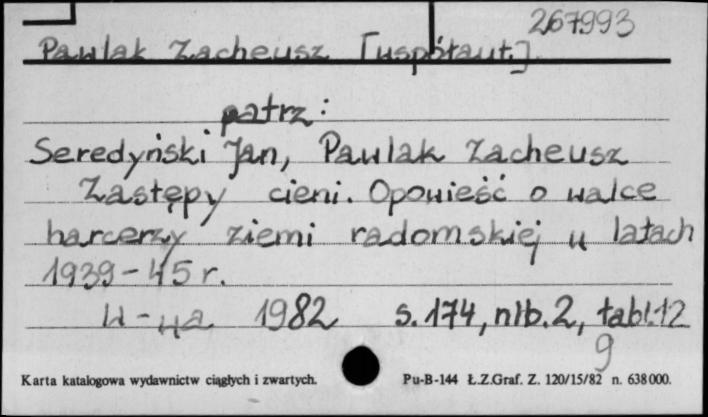 267993
Pawlak Zacheusz [współaut.]
patrz:
Seredyński Jan, Pawlak Zacheusz
Zastępy cieni. Opowieść o walce
harcerzy ziemi radomskiej w latach
1939-45 r.
W-wa 1982 s. 174, nlb. 2, tabl. 12
9
Karta katalogowa wydawnictw ciągłych i zwartych. Pu-B-144 Ł.Z.Graf. Z. 120/15/82 n. 638000.